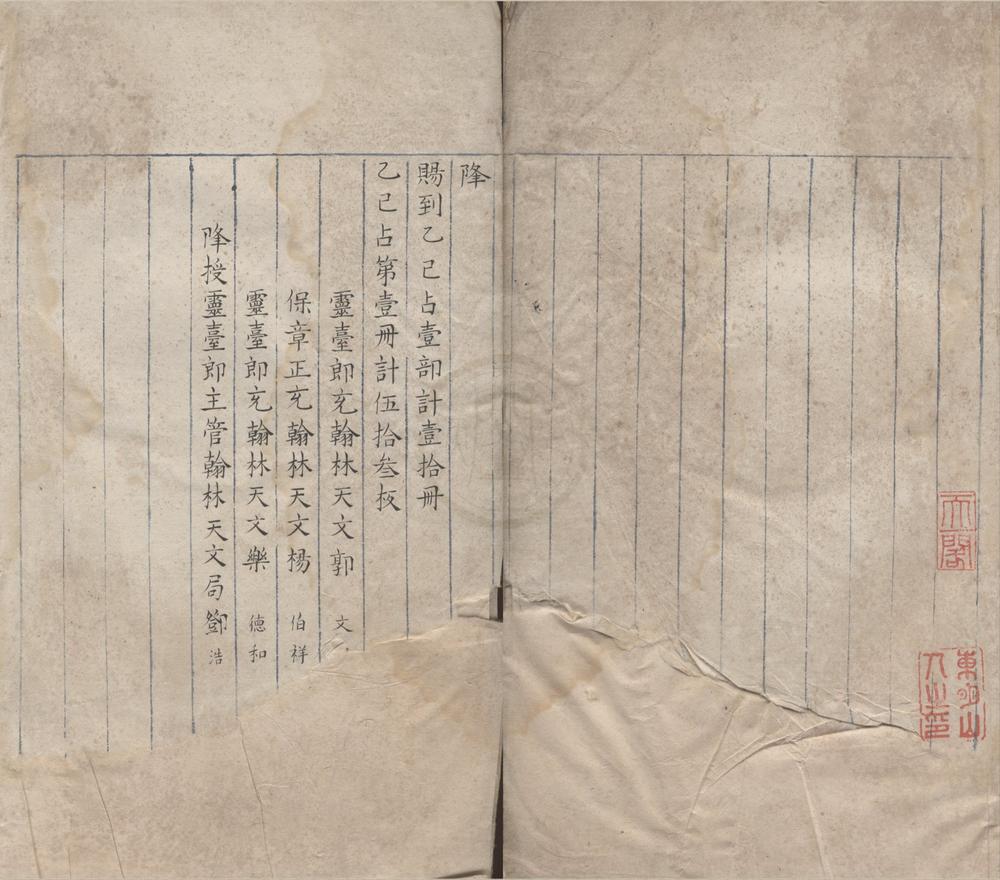 天一閣
東明山人之印
降
賜到乙巳占壹部計壹拾冊
乙巳占第壹冊計伍拾叁板
靈臺郎充翰林天文郭 文
保章正充翰林天文楊 伯祥
靈臺郎充翰林天文樂 德和
降授靈臺郎主管翰林天文局鄧 浩